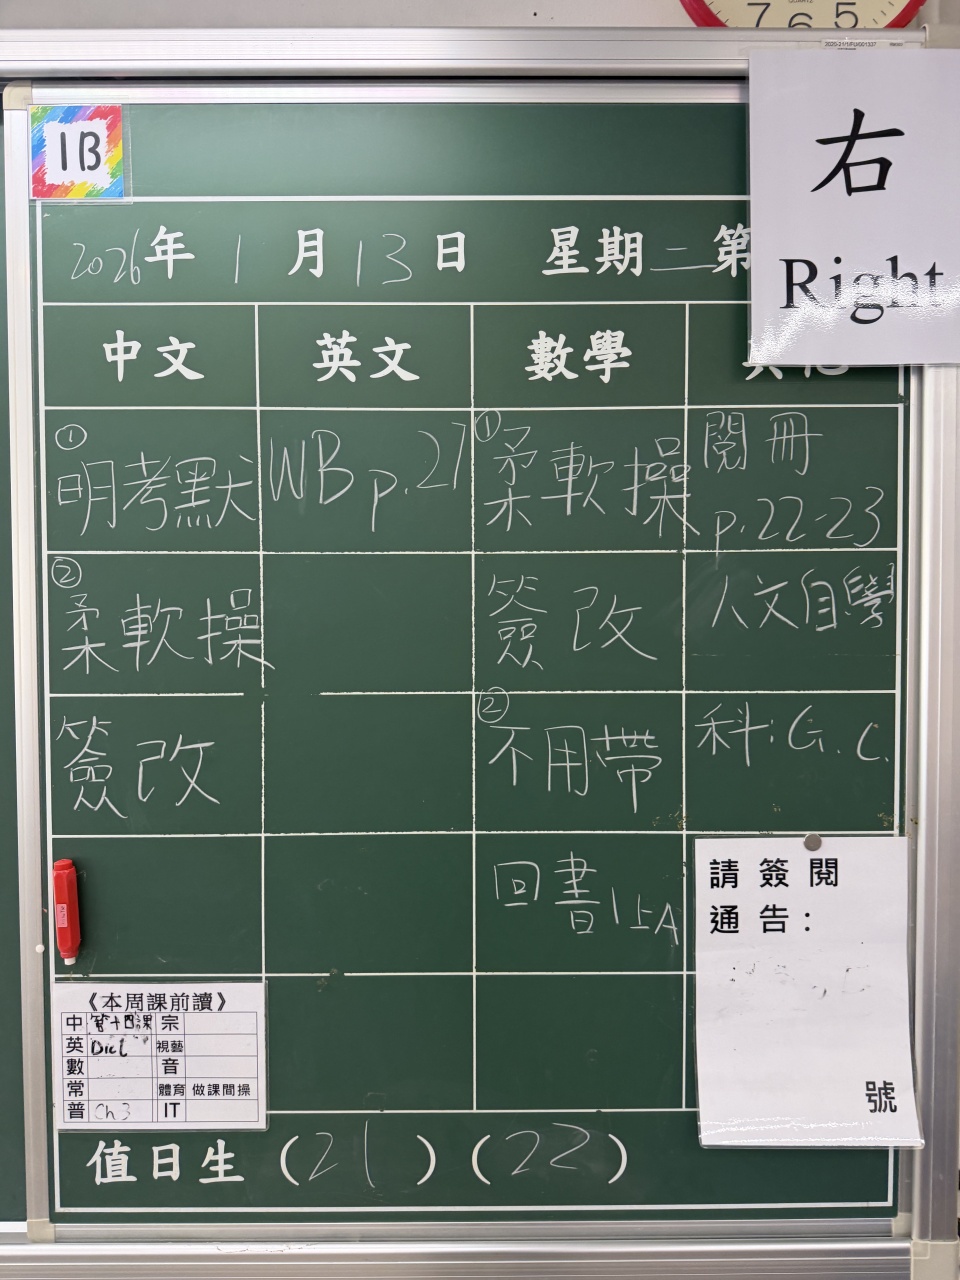 7 6 5
2020-21/1/FU/001337
右
Right
1B
2026年 1 月 13 日 星期二 第
中文 英文 數學
① 明考默
② 柔軟操
簽改
WB p.27
① 柔軟操
簽改
② 不用帶
回書1上A
閱冊
p.22-23
人文自學
科:G.C.
請簽閱
通告:
號
《本周課前讀》
中 第十四課 宗
英 Dict 視藝
數 音
常 體育 做課間操
普 Ch3 IT
值日生 (21) (22)